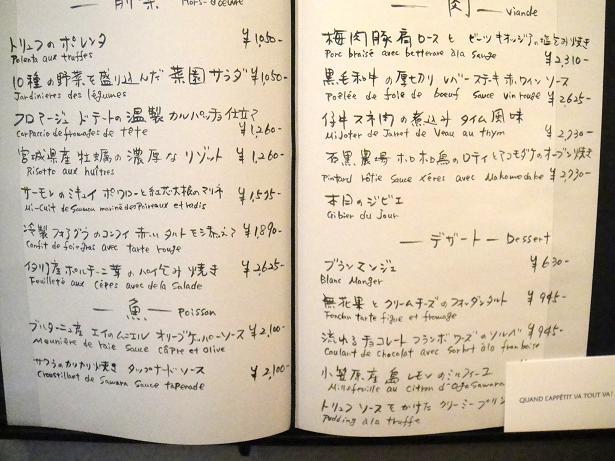 前菜 Hors-d'oeuvre
トリュフのポレンタ ¥1,050-
Polenta aux truffes
10種の野菜を盛り込んだ 菜園サラダ ¥1,050
Jardinieres des légumes
フロマージュ ド テートの温製カルパッチョ仕立て
Carpaccio de fromages de tête ¥1,260-
宮城県産 牡蠣の濃厚な リゾット ¥1,260
Risotto aux huîtres
サーモンのミキュイ ポワローと紅芯大根のマリネ ¥1,595-
Mi-Cuit de Saumon mariné des Poireaux et radis
冷製フォアグラのコンフィ 赤いタルトを添えて ¥1,890-
Confit de foie gras avec tarte rouge
イタリア産ポルチーニ茸のパイ包み焼き ¥2,625-
Feuilleté aux cèpes avec de la Salade
魚 Poisson
ブルターニュ産 エイのムニエル オリーブケッパーソース ¥2,100-
Meunière de raie Sauce câpre et olive
サワラのカリカリ焼き タップナードソース ¥2,100-
Croustillant de Sawara Sauce tapenade
肉 Viande
梅肉豚肩ロースと ビーツ
Porc braisé avec betterave à la Sauge ¥2,310-
黒毛和牛の厚切り レバーステーキ 赤ワインソース
Poêlée de foie de boeuf Sauce vin rouge ¥2625-
仔牛スネ肉の煮込み タイム風味
Mijoter de Jarret de Veau au thym ¥2,730-
石黒農場 ホロホロ鳥のロティ とアコモダケのオーブン焼き
Pintard rôtie Sauce xérès avec Nakomodake ¥2,730
本日のジビエ
Gibier du Jour
デザート Dessert
ブランマンジェ ¥630-
Blanc Manger
無花果とクリームチーズのフォンダンタルト ¥945-
Fondan tarte figue et fromage
流れるチョコレート フランボワーズのソルベ ¥945-
Coulant de chocolat avec Sorbet à la framboise
小笠原産 島レモンのミルフィーユ
Millefeuille au Citron d'Ogasawara
トリュフソースをかけた クリーミープリン
Pudding à la truffe
QUAND L'APPÉTIT VA TOUT VA!